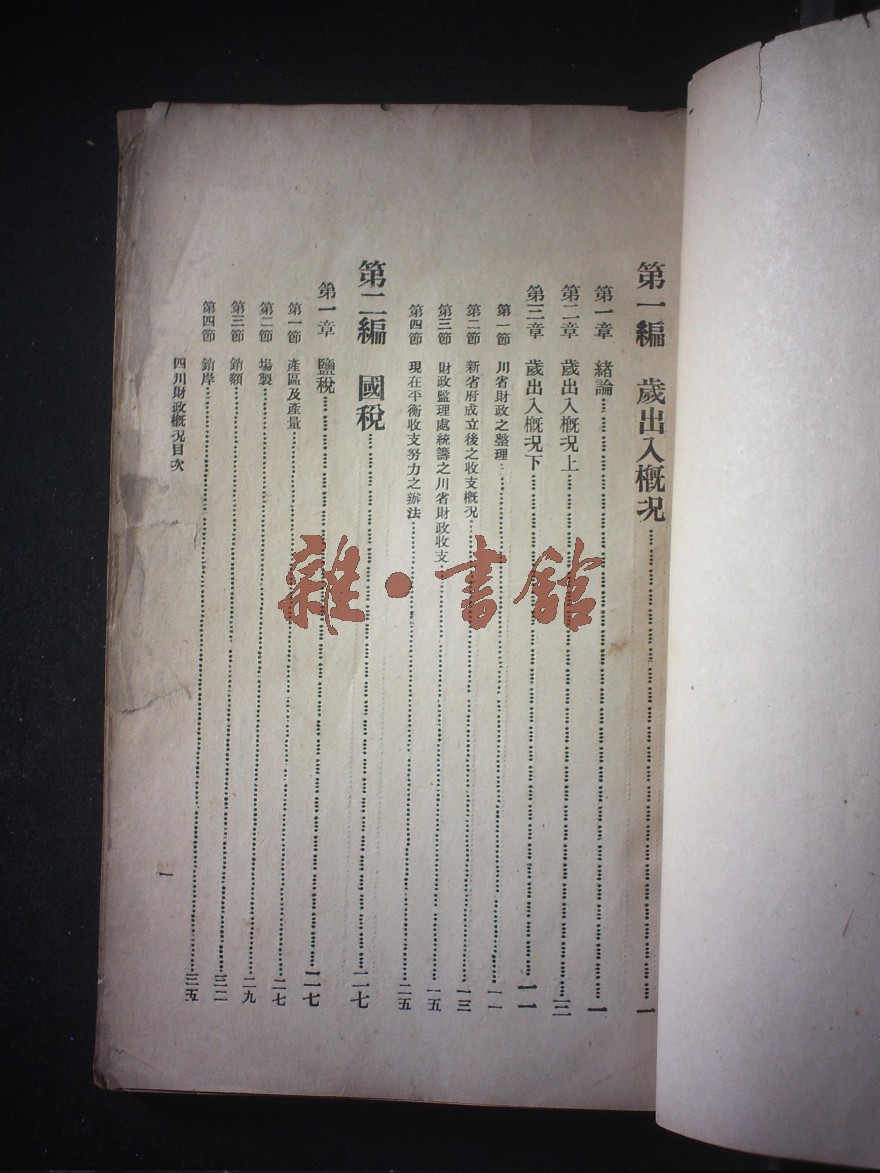 第一編　歲出入概況……一
第一章　緒論……一
第二章　歲出入概況上……三
第三章　歲出入概況下……一一
第一節　川省財政之整理……一一
第二節　新省府成立後之收支概況……一三
第三節　財政監理處統籌之川省財政收支……一五
第四節　現在平衡收支努力之辦法……二五
第二編　國稅……二七
第一章　鹽稅……二七
第一節　產區及產量……二七
第二節　場製……二九
第三節　銷額……三二
第四節　銷岸……三五
四川財政概況目次
一
雜·書館